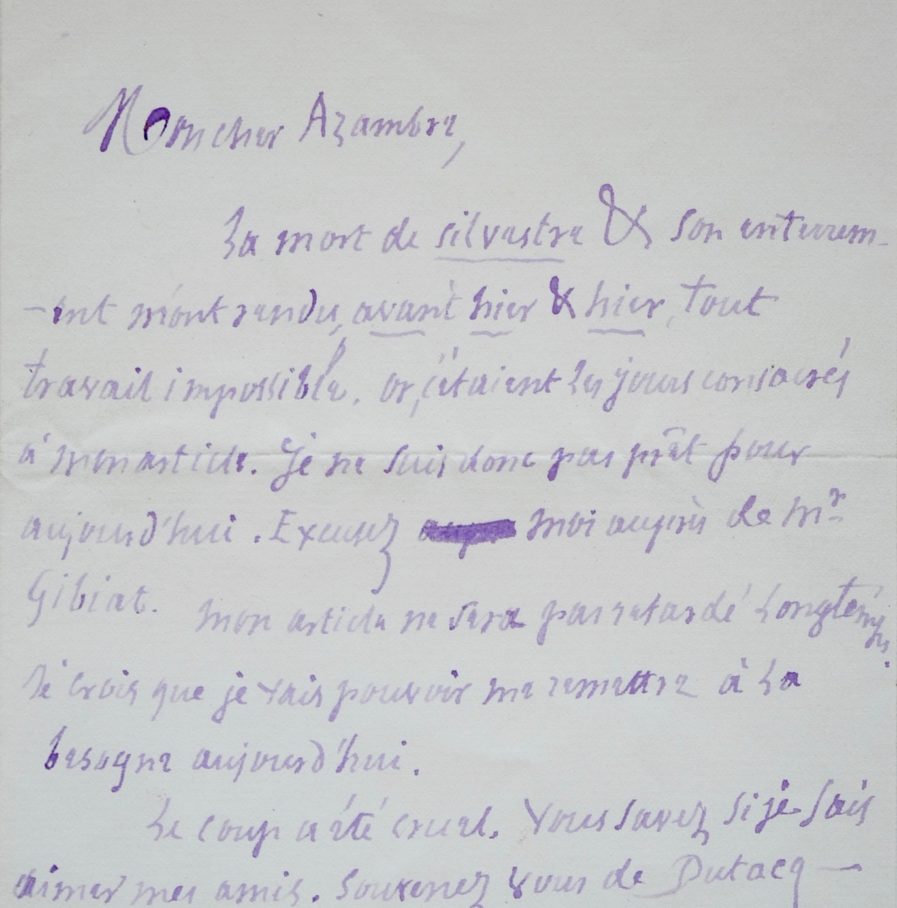 Mon cher Azambre,
La mort de silvestre & son enterrem-
-ent m'ont rendu, avant hier & hier, tout
travail impossible. Or, c'étaient les jours consacrés
à mon article. Je ne suis donc pas prêt pour
aujourd'hui. Excusez moi auprès de Mr
Gibiat. Mon article ne sera pas retardé longtemps.
Je crois que je vais pouvoir me remettre à la
besogne aujourd'hui.
Le coup a été cruel. Vous savez si je sais
aimer mes amis. Souvenez vous de Dutacq —